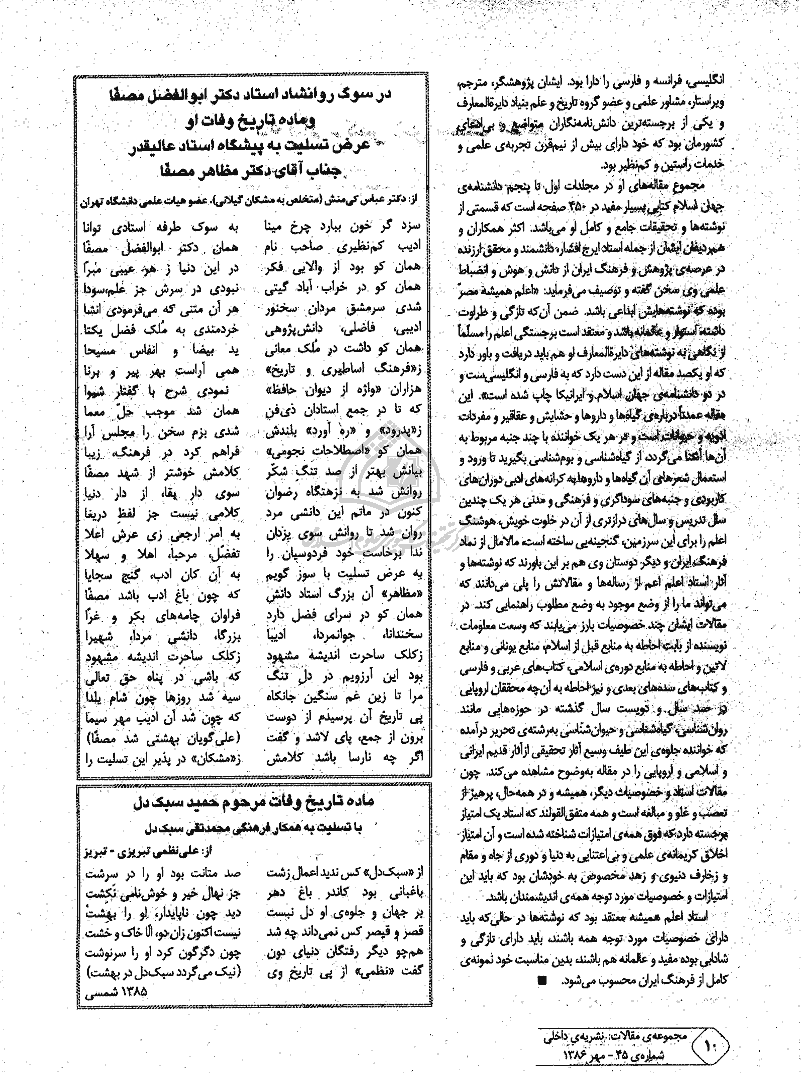 انگلیسی، فرانسه و فارسی را دارا بود. ایشان پژوهشگر، مترجم،
ویراستار، مشاور علمی و عضو گروه تاریخ و علم بنیاد دایرةالمعارف
و یکی از برجسته‌ترین دانش‌نامه‌نگاران متواضع و بی‌ادعای
کشورمان بود که خود دارای بیش از نیم‌قرن تجربه‌ی علمی و
خدمات راستین و کم‌نظیر بود.
مجموع مقاله‌های او در مجلدات اول تا پنجم دانشنامه‌ی
جهان اسلام کتابی بسیار مفید در ۴۵۰ صفحه است که قسمتی از
نوشته‌ها و تحقیقات جامع و کامل او می‌باشد. اکثر همکاران و
هم‌ردیفان ایشان از جمله استاد ایرج افشار، دانشمند و محقق ارزنده
در عرصه‌ی پژوهش و فرهنگ ایران از دانش و هوش و انضباط
علمی وی سخن گفته و توصیف می‌فرماید: «اعلم همیشه مصرّ
بوده که نوشته‌هایش ابداعی باشد. ضمن آن‌که تازگی و طراوت
داشته، استوار و عالمانه باشد و معتقد است برجستگی اعلم را مسلّماً
از نگاهی به نوشته‌های دایرةالمعارف او هم باید دریافت و باور دارد
که او یکصد مقاله از این دست دارد که به فارسی و انگلیسی‌ست و
در دو دانشنامه‌ی جهان اسلام و ایرانیکا چاپ شده است». این
مقاله عمدتاً درباره‌ی گیاه‌ها و داروها و حشایش و عقاقیر و مفردات
ادویه و حیوانات است و در هر یک خواننده با چند جنبه مربوط به
آن‌ها آشنا می‌گردد، از گیاه‌شناسی و بوم‌شناسی بگیرید تا ورود و
استعمال شعرهای آن گیاه‌ها و داروها، به کرانه‌های ادبی دوران‌های
کاربردی و جنبه‌های سوداگری و فرهنگی و مدنی هر یک چندین
سال تدریس و سال‌های درازتری از آن در خلوت خویش، هوشنگ
اعلم را برای این سرزمین، گنجینه‌یی ساخته است، مالامال از نماد
فرهنگ ایران و دیگر دوستان وی هم بر این باورند که نوشته‌ها و
آثار استاد اعلم اعم از رساله‌ها و مقالاتش را پلی می‌دانند که
می‌تواند ما را از وضع موجود به وضع مطلوب راهنمایی کند. در
مقالات ایشان چند خصوصیات بارز می‌یابند که وسعت معلومات
نویسنده از بابت احاطه به منابع قبل از اسلام، منابع یونانی و منابع
لاتین و احاطه به منابع دوره‌ی اسلامی، کتاب‌های عربی و فارسی
و کتاب‌های سده‌های بعدی و نیز احاطه به آن‌چه محققان اروپایی
در صد سال و دویست سال گذشته در حوزه‌هایی مانند
روان‌شناسی، گیاه‌شناسی و حیوان‌شناسی به‌رشته‌ی تحریر درآمده
که خواننده جلوه‌ی این طیف وسیع آثار تحقیقی از آثار قدیم ایرانی
و اسلامی و اروپایی را در مقاله به‌وضوح مشاهده می‌کند. چون
مقالات استاد و خصوصیات دیگر، همیشه و در همه‌حال، پرهیز از
تعصب و غلو و مبالغه است و همه متفق‌القولند که استاد یک امتیاز
برجسته دارد که فوق همه‌ی امتیازات شناخته شده است و آن امتیاز
اخلاق کریمانه‌ی علمی و بی‌اعتنایی به دنیا و دوری از جاه و مقام
و زخارف دنیوی و زهد مخصوص به خودشان بود که باید این
امتیازات و خصوصیات مورد توجه همه‌ی اندیشمندان باشد.
استاد اعلم همیشه معتقد بود که نوشته‌ها در حالی‌که باید
دارای خصوصیات مورد توجه همه باشند، باید دارای تازگی و
شادابی بوده مفید و عالمانه هم باشند، بدین مناسبت خود نمونه‌ی
کامل از فرهنگ ایران محسوب می‌شود.
در سوگ روانشاد استاد دکتر ابوالفضل مصفّا
وماده تاریخ وفات او
عرض تسلیت به پیشگاه استاد عالیقدر
جناب آقای دکتر مظاهر مصفّا
از: دکتر عباس کی‌منش (متخلص به مشکان گیلانی)، عضو هیات علمی دانشگاه تهران
سزد گر خون ببارد چرخ مینا به سوک طرفه استادی توانا
ادیب کم‌نظیری صاحب نام همان دکتر ابوالفضل مصفّا
همان کو بود از والایی فکر در این دنیا ز هر عیبی مبرّا
همان کو در خراب آباد گیتی نبودی در سرش جز علم، سودا
شدی سرمشق مردان سخنور هر آن متنی که می‌فرمودی انشا
ادیبی، فاضلی، دانش‌پژوهی خردمندی به مُلک فضل یکتا
همان کو داشت در مُلک معانی ید بیضا و انفاس مسیحا
ز«فرهنگ اساطیری و تاریخ» همی آراست بهر پیر و برنا
هزاران «واژه از دیوان حافظ» نمودی شرح با گفتار شیوا
که تا در جمع استادان ذی‌فن همان شد موجب حلّ معما
ز«پدرود» و «ره آورد» بلندش شدی بزم سخن را مجلس آرا
همان کو «اصطلاحات نجومی» فراهم کرد در فرهنگ، زیبا
بیانش بهتر از صد تنگ شکّر کلامش خوشتر از شهد مصفّا
روانش شد به نزهتگاه رضوان سوی دار بقا، از دار دنیا
کنون در ماتم این دانشی مرد کلامی نیست جز لفظ دریغا
روان شد تا روانش سوی یزدان به امر ارجعی زی عرش اعلا
ندا برخاست خود فردوسیان را تفضّل، مرحبا، اهلا و سهلا
به عرض تسلیت با سوز گویم به آن کان ادب، گنج سجایا
«مظاهر» آن بزرگ استاد دانش که چون باغ ادب باشد مصفّا
همان کو در سرای فضل دارد فراوان چامه‌های بکر و غرّا
سخندانا، جوانمردا، ادیبا بزرگا، دانشی مردا، شهیرا
زکلک ساحرت اندیشه مشهود زکلک ساحرت اندیشه مشهود
بود این آرزویم در دل تنگ که باشی در پناه حق تعالی
مرا تا زین غم سنگین جانکاه سیه شد روزها چون شام یلدا
پی تاریخ آن پرسیدم از دوست که چون شد آن ادیب مهر سیما
برون از جمع، پای لاشد و گفت (علی‌گویان بهشتی شد مصفّا)
اگر چه نارسا باشد کلامش ز«مشکان» در پذیر این تسلیت را
ماده تاریخ وفات مرحوم حمید سبک دل
با تسلیت به همکار فرهنگی محمدتقی سبک دل
از: علی‌نظمی تبریزی - تبریز
از «سبک‌دل» کس ندید اعمال زشت صد متانت بود او را در سرشت
باغبانی بود کاندر باغ دهر جز نهال خیر و خوش‌نامی نکِشت
بر جهان و جلوه‌ی او دل نبست دید چون ناپایدار، او را بهشت
قصر و قیصر کس نمی‌داند چه شد نیست اکنون زان دو، الّا خاک و خشت
هم‌چو دیگر رفتگان دنیای دون چون دگرگون کرد او را سرنوشت
گفت «نظمی» از پی تاریخ وی (نیک می‌گردد سبک‌دل در بهشت)
۱۳۸۵ شمسی
مجموعه‌ی مقالات: نشریه‌ی داخلی
شماره‌ی ۴۵ - مهر ۱۳۸۶
۱۰